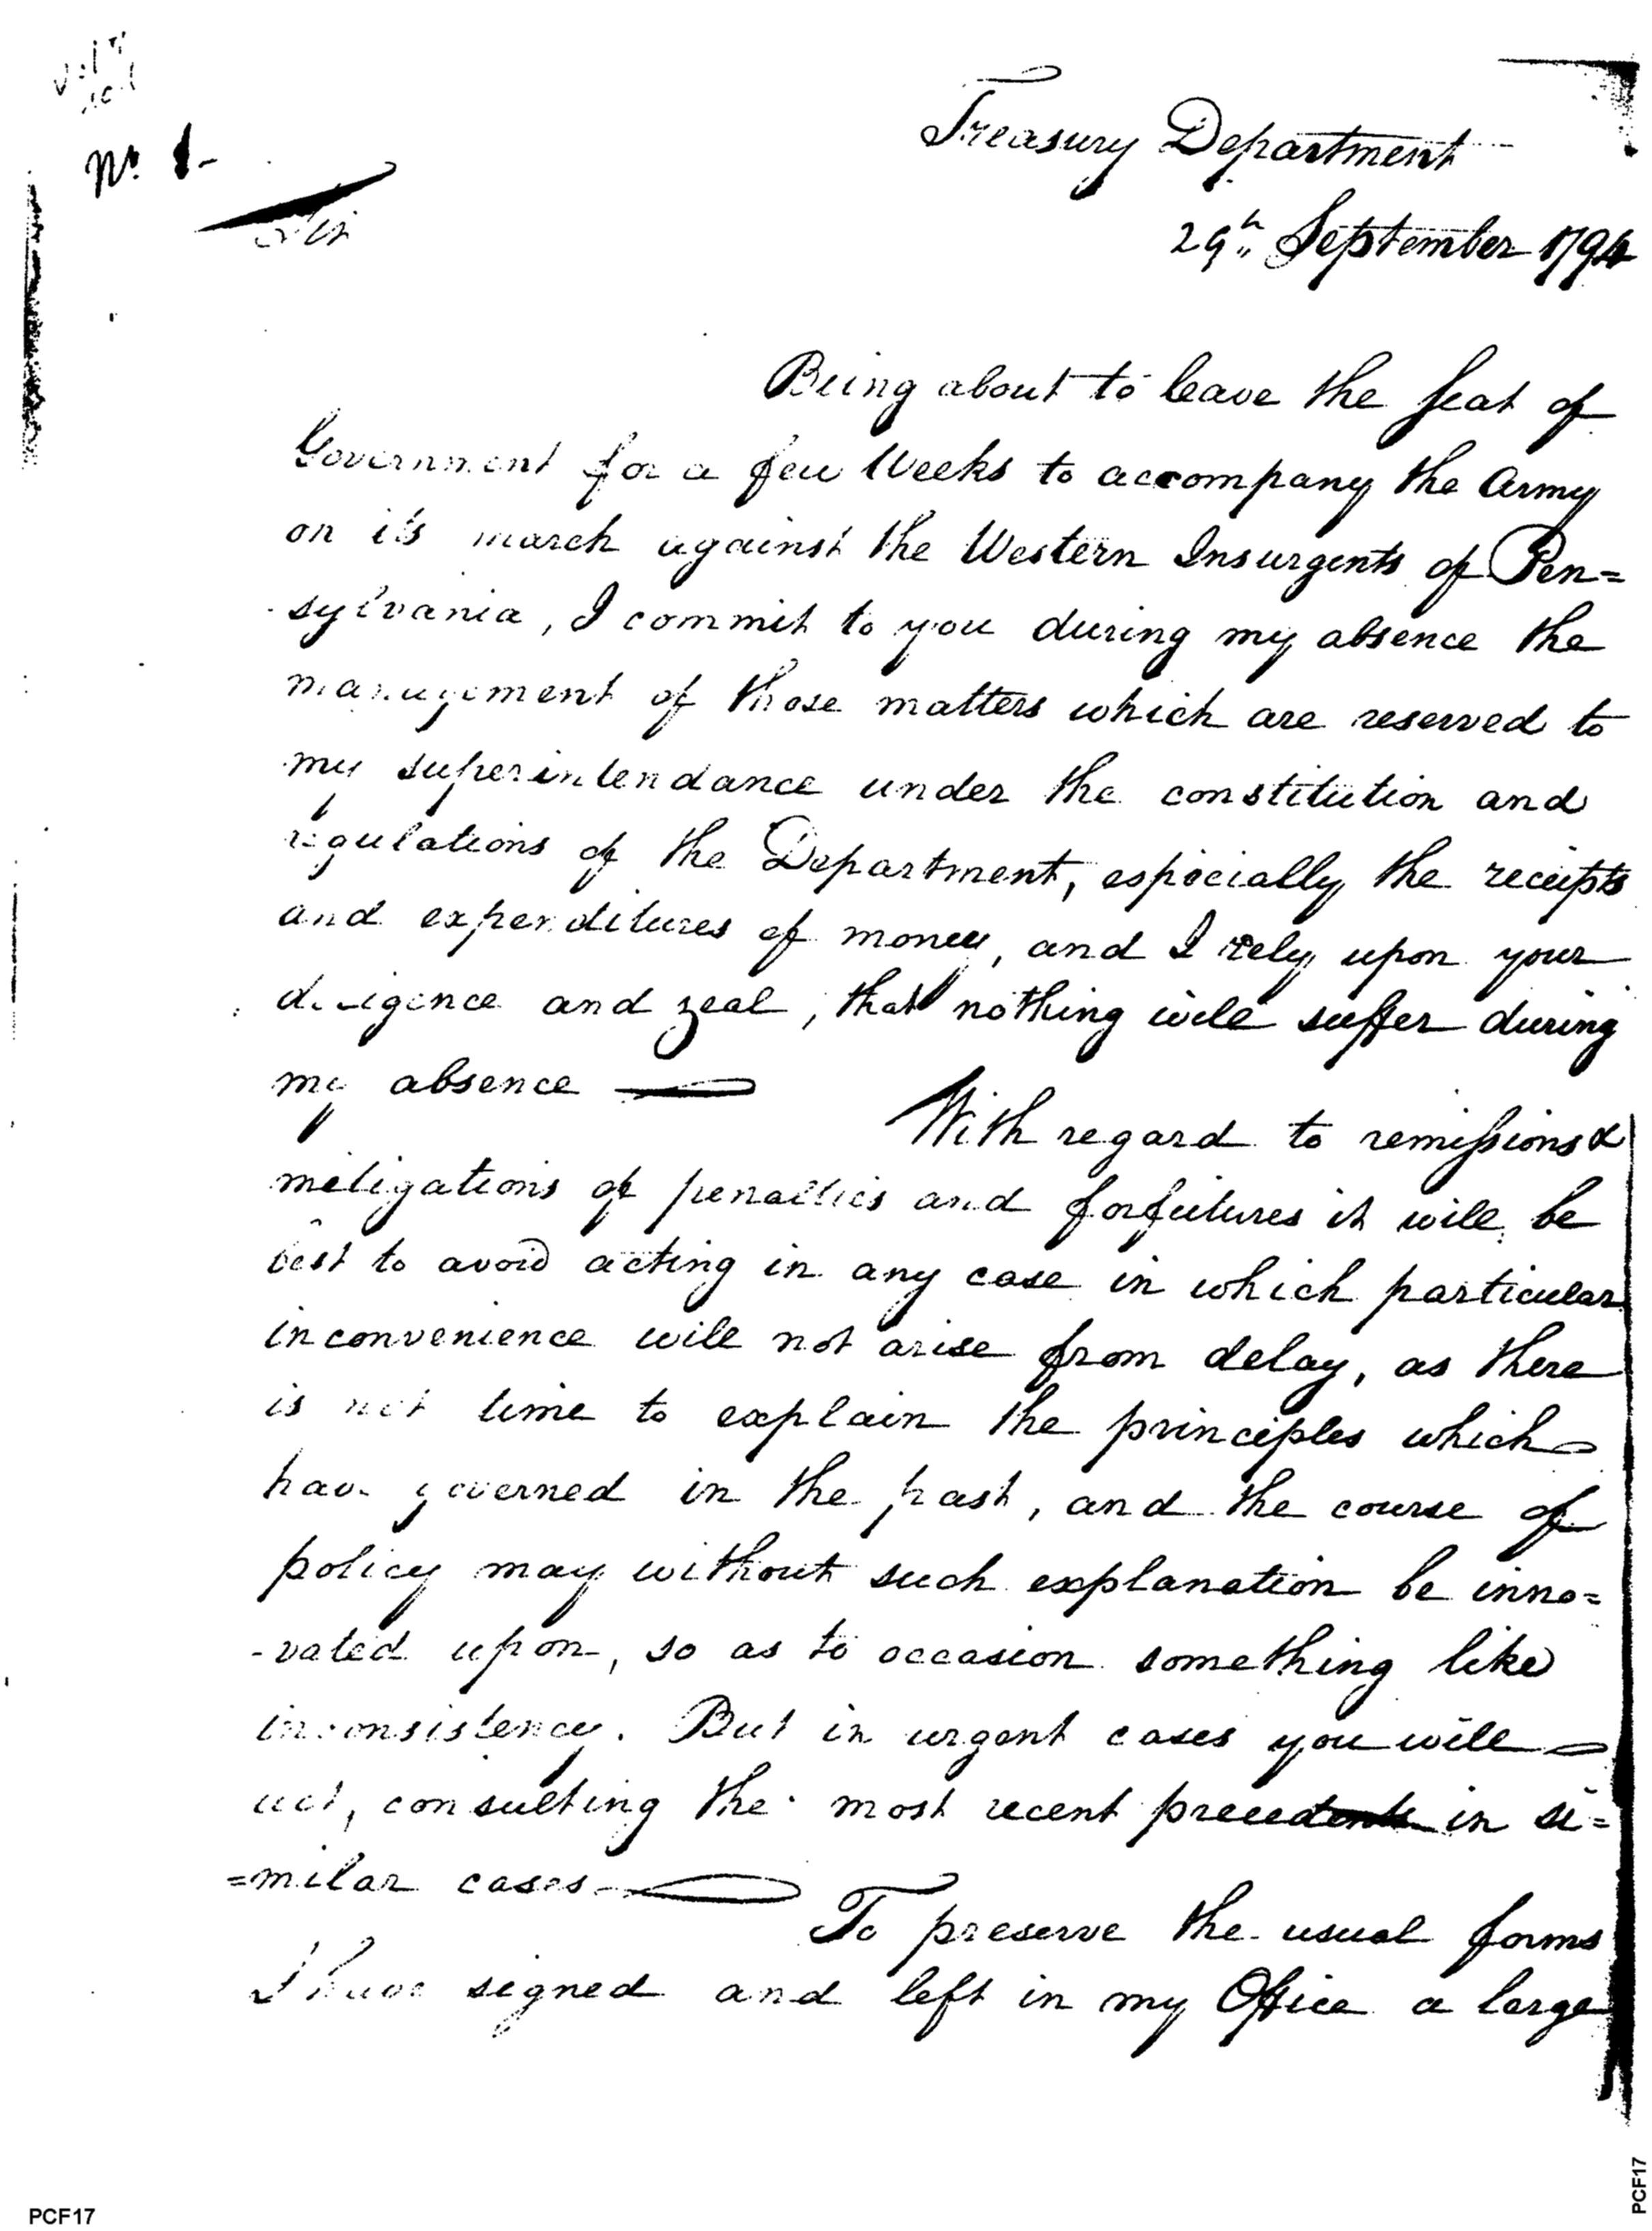 No. 1-
Treasury Department
Sir
29th September 1794
Being about to leave the seat of
Government for a few Weeks to accompany the Army
on it's march against the Western Insurgents of Pen=
sylvania, I commit to you during my absence the
management of those matters which are reserved to
my superintendance under the constitution and
regulations of the Department, especially the receipts
and expenditures of money, and I rely upon your
diligence and zeal, that nothing will suffer during
my absence —
With regard to remissions &
mitigations of penalties and forfeitures it will be
best to avoid acting in any case in which particular
inconvenience will not arise from delay, as there
is not time to explain the principles which
have governed in the past, and the course of
policy may without such explanation be inno=
-vated upon, so as to occasion something like
inconsistency. But in urgent cases you will
act, consulting the most recent precedents in si=
=milar cases —
To preserve the usual forms
I have signed and left in my Office a large
PCF17
PCF17